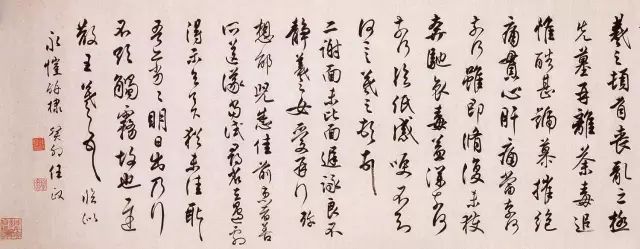 羲之頓首喪亂之極
先墓再離荼毒追
惟酷甚號慕摧絕
痛貫心肝痛當奈何
奈何雖即脩復未獲
奔馳哀毒益深奈何
奈何臨紙感哽不知
何言羲之頓首
二謝面未比面遲詠良不
靜羲之女愛再拜
想邰兒悉佳前患者善
所送議當試尋省左邊劇
得示知足下猶未佳耿
吾亦劣劣明日出乃行
不欲觸霧故也遲
散王羲之頓首 臨似
永愷 棣 癸卯任政